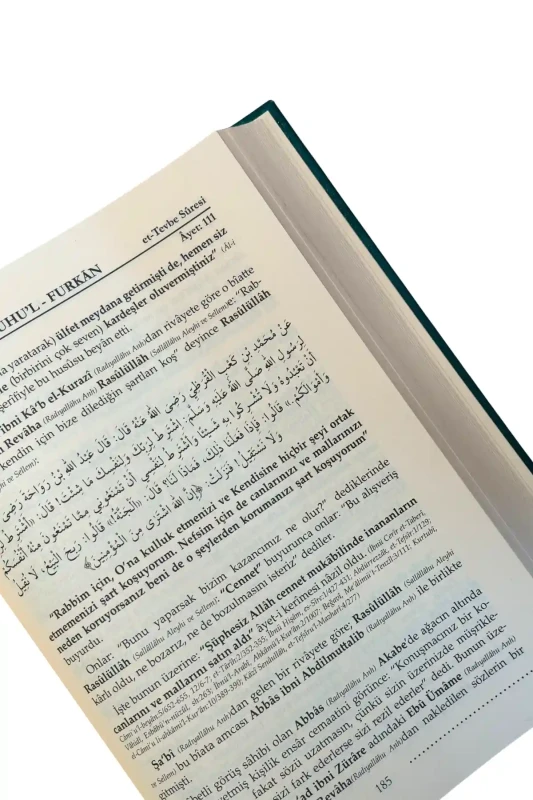 UHU'L - FURKÂN
et-Tevbe Sûresi
Âyet: 111
yaratarak) ülfet meydana getirmişti de, hemen siz
(birbirini çok seven) kardeşler oluvermiştiniz" (Âl-i
şerîfiyle bu hususu beyân etti.
ibni Kâ'b el-Kurazî (Radıyallâhu Anh)dan rivâyete göre o bîatte
Revâha (Radıyallâhu Anh) Rasûlüllâh (Sallâllâhu Aleyhi ve Sellem)e: "Rab-
kendin için bize dilediğin şartları koş" deyince Rasûlüllâh
ve Sellem):
عَنْ مُحَمَّدِ بْنِ كَعْبٍ الْقُرَظِيِّ رَضِيَ اللهُ عَنْهُ قَالَ: قَالَ عَبْدُ اللهِ بْنُ رَوَاحَةَ رَضِيَ
لِرَسُولِ اللهِ صَلَّى اللهُ عَلَيْهِ وَسَلَّمَ: اِشْتَرِطْ لِرَبِّكَ وَلِنَفْسِكَ مَا شِئْتَ! قَالَ: «أَشْتَرِطُ
أَنْ تَعْبُدُوهُ وَلَا تُشْرِكُوا بِهِ شَيْئًا وَأَشْتَرِطُ لِنَفْسِي أَنْ تَمْنَعُونِي مِمَّا تَمْنَعُونَ مِنْهُ أَنْفُسَكُمْ
وَأَمْوَالَكُمْ.» قَالُوا: فَإِذَا فَعَلْنَا ذٰلِكَ، فَمَاذَا لَنَا؟ قَالَ: «اَلْجَنَّةُ!» قَالُوا: رَبِحَ الْبَيْعُ، لَا نُقِيلُ
وَلَا نَسْتَقِيلُ! فَنَزَلَتْ: ﴿إِنَّ اللهَ اشْتَرَى مِنَ الْمُؤْمِنِينَ﴾
"Rabbim için, O'na kulluk etmenizi ve Kendisine hiçbir şeyi ortak
etmemenizi şart koşuyorum. Nefsim için de canlarınızı ve mallarınızı
neden koruyorsanız beni de o şeylerden korumanızı şart koşuyorum"
buyurdu.
Onlar: "Bunu yaparsak bizim kazancımız ne olur?" dediklerinde
Rasûlüllâh (Sallâllâhu Aleyhi ve Sellem): "Cennet" buyurunca onlar: "Bu alışveriş
kârlı oldu, ne bozarız, ne de bozulmasını isteriz" dediler.
İşte bunun üzerine: "Şüphesiz Allâh cennet mukâbilinde inananların
canlarını ve mallarını satın aldı" âyet-i kerîmesi nâzil oldu. (İbnü Cerîr et-Taberî,
Şa'bî (Radıyallâhu Anh)dan gelen bir rivâyete göre; Rasûlüllâh (Sallâllâhu Aleyhi
ve Sellem) bu bîata amcası Abbâs ibni Abdilmuttalib (Radıyallâhu Anh) ile birlikte
gitmişti.
betli görüş sâhibi olan Abbâs (Radıyallâhu Anh) Akabe'de ağacın altında
yetmiş kişilik ensâr cemaatini görünce: "Konuşmacınız bir ko-
fakat sözü uzatmasın, çünkü sizin üzerinizde müşrikle-
sizi fark ederlerse sizi rezil ederler" dedi. Bunun üze-
ad ibni Zürâre adındaki Ebû Ümâme (Radıyallâhu Anh)
Revâha (Radıyallâhu Anh)dan nakledilen sözlerin bir
185